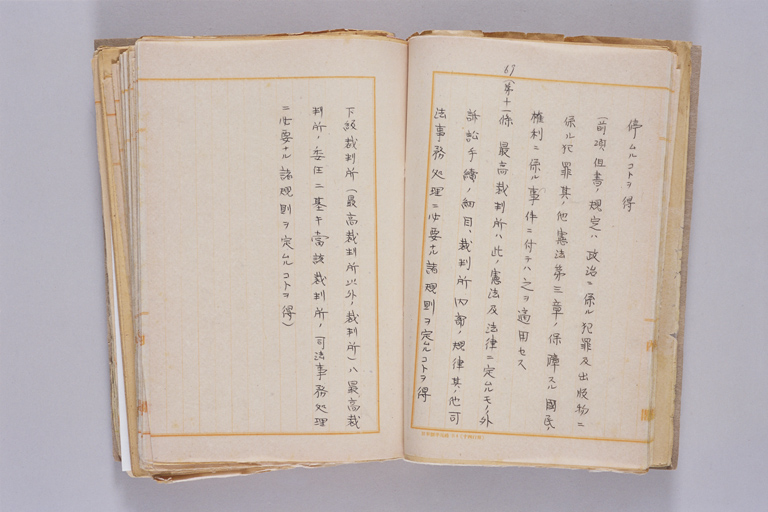 停ムルコトヲ得
(前項但書ノ規定ハ政治ニ係ル犯罪及出版物ニ
係ル犯罪其ノ他憲法第三章ノ保障スル國民ノ
権利ニ係ル事件ニ付テハ之ヲ適用セス
67 (第十一條 最高裁判所ハ此ノ憲法及法律ニ定ムルモノノ外
訴訟手續ノ細目、裁判所内部ノ規律其ノ他司
法事務処理ニ必要ナル諸規則ヲ定ムルコトヲ得
下級裁判所(最高裁判所以外ノ裁判所)ハ最高裁
判所ノ委任ニ基キ當該裁判所ノ司法事務処理
ニ必要ナル諸規則ヲ定ムルコトヲ得)